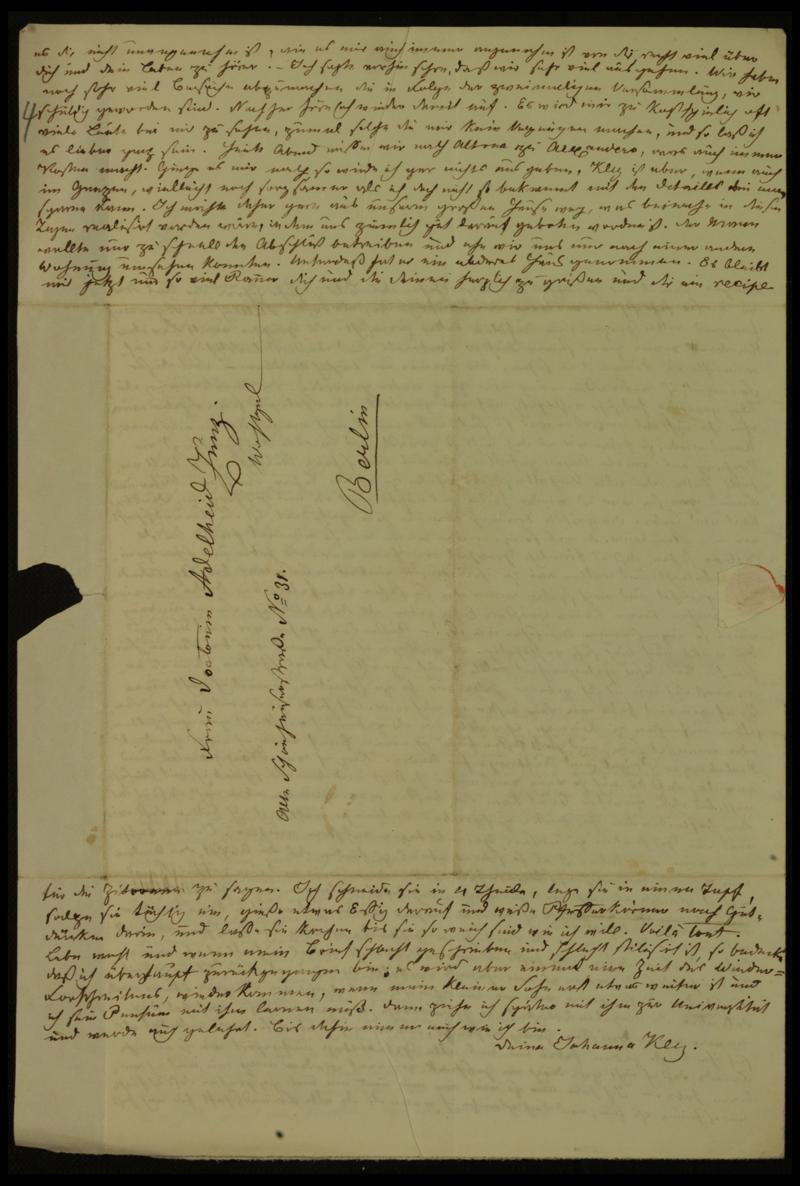 es dir nicht unangenehm ist, wie es mir auch immer angenehm ist von dir recht viel über
dich und dein Leben zu hören. – Ich sagte vorhin schon, daß wir sehr viel ausgehen. Wir haben
noch sehr viel Besuche abzumachen die in Folge der zweimaligen Versammlung, wir
schuldig geworden sind. Nachher hört es wieder auf. Es wird mir zu kostspielig oft
viele Leute bei mir zu sehen, zumal solche die mir kein Vergnügen machen, und so laß ich
es lieber ganz sein. Heute Abend müssen wir nach Altona zu Alexanders, was auch immer
Kosten macht. Ginge es nur nach so würde ich gar nichts ausgeben, Kley ist aber, wenn auch
im Ganzen, vielleicht noch sparsamer als ich doch nicht so bekannt mit den Details wo man
sparen kann. Ich möchte daher gern aus unserm großen Hause weg, was beinahe in diesen
Tagen realisirt worden wäre, indem uns ziemlich gut darauf geboten worden ist. Der Mann
wollte nur zu schnell den Abschluß betreiben und ehe wir uns nur nach einer andern
Wohnung umsehen konnten. Unterdeß hat er ein anderes Haus genommen. Es bleibt
mir jetzt nur so viel Raum dich und die deinen herzlich zu grüßen und dir ein recipe
4
Frau Doctorin Adelheid Zunz.
Alte Schönhauserstraße No 31.
Berlin
für die zu sagen. Ich schneide sie in 4 Theile, lege sie in einen Topf,
salze sie tüchtig ein, gieße etwas Essig darauf und weiße Pfefferkörner nach Gut-
dünken darin, und lasse sie kochen bis sie so weich sind wie ich will. Voilà tout.
Lebe wohl und wenn mein Brief schlecht geschrieben und schlecht stilisirt ist, so bedenke
daß ich überhaupt zurückgegangen bin; es wird aber einmal eine Zeit des Wieder-
Fortschreitens, wieder kommen, wenn mein kleiner Sohn erst etwas weiter ist und
ich sein Pensum mit ihm lernen muß. Dann ziehe ich später mit ihm zur Universität
und werde auch gelehrt. Bis dahin nimm mich wie ich bin.
Deine Johanna Kley.